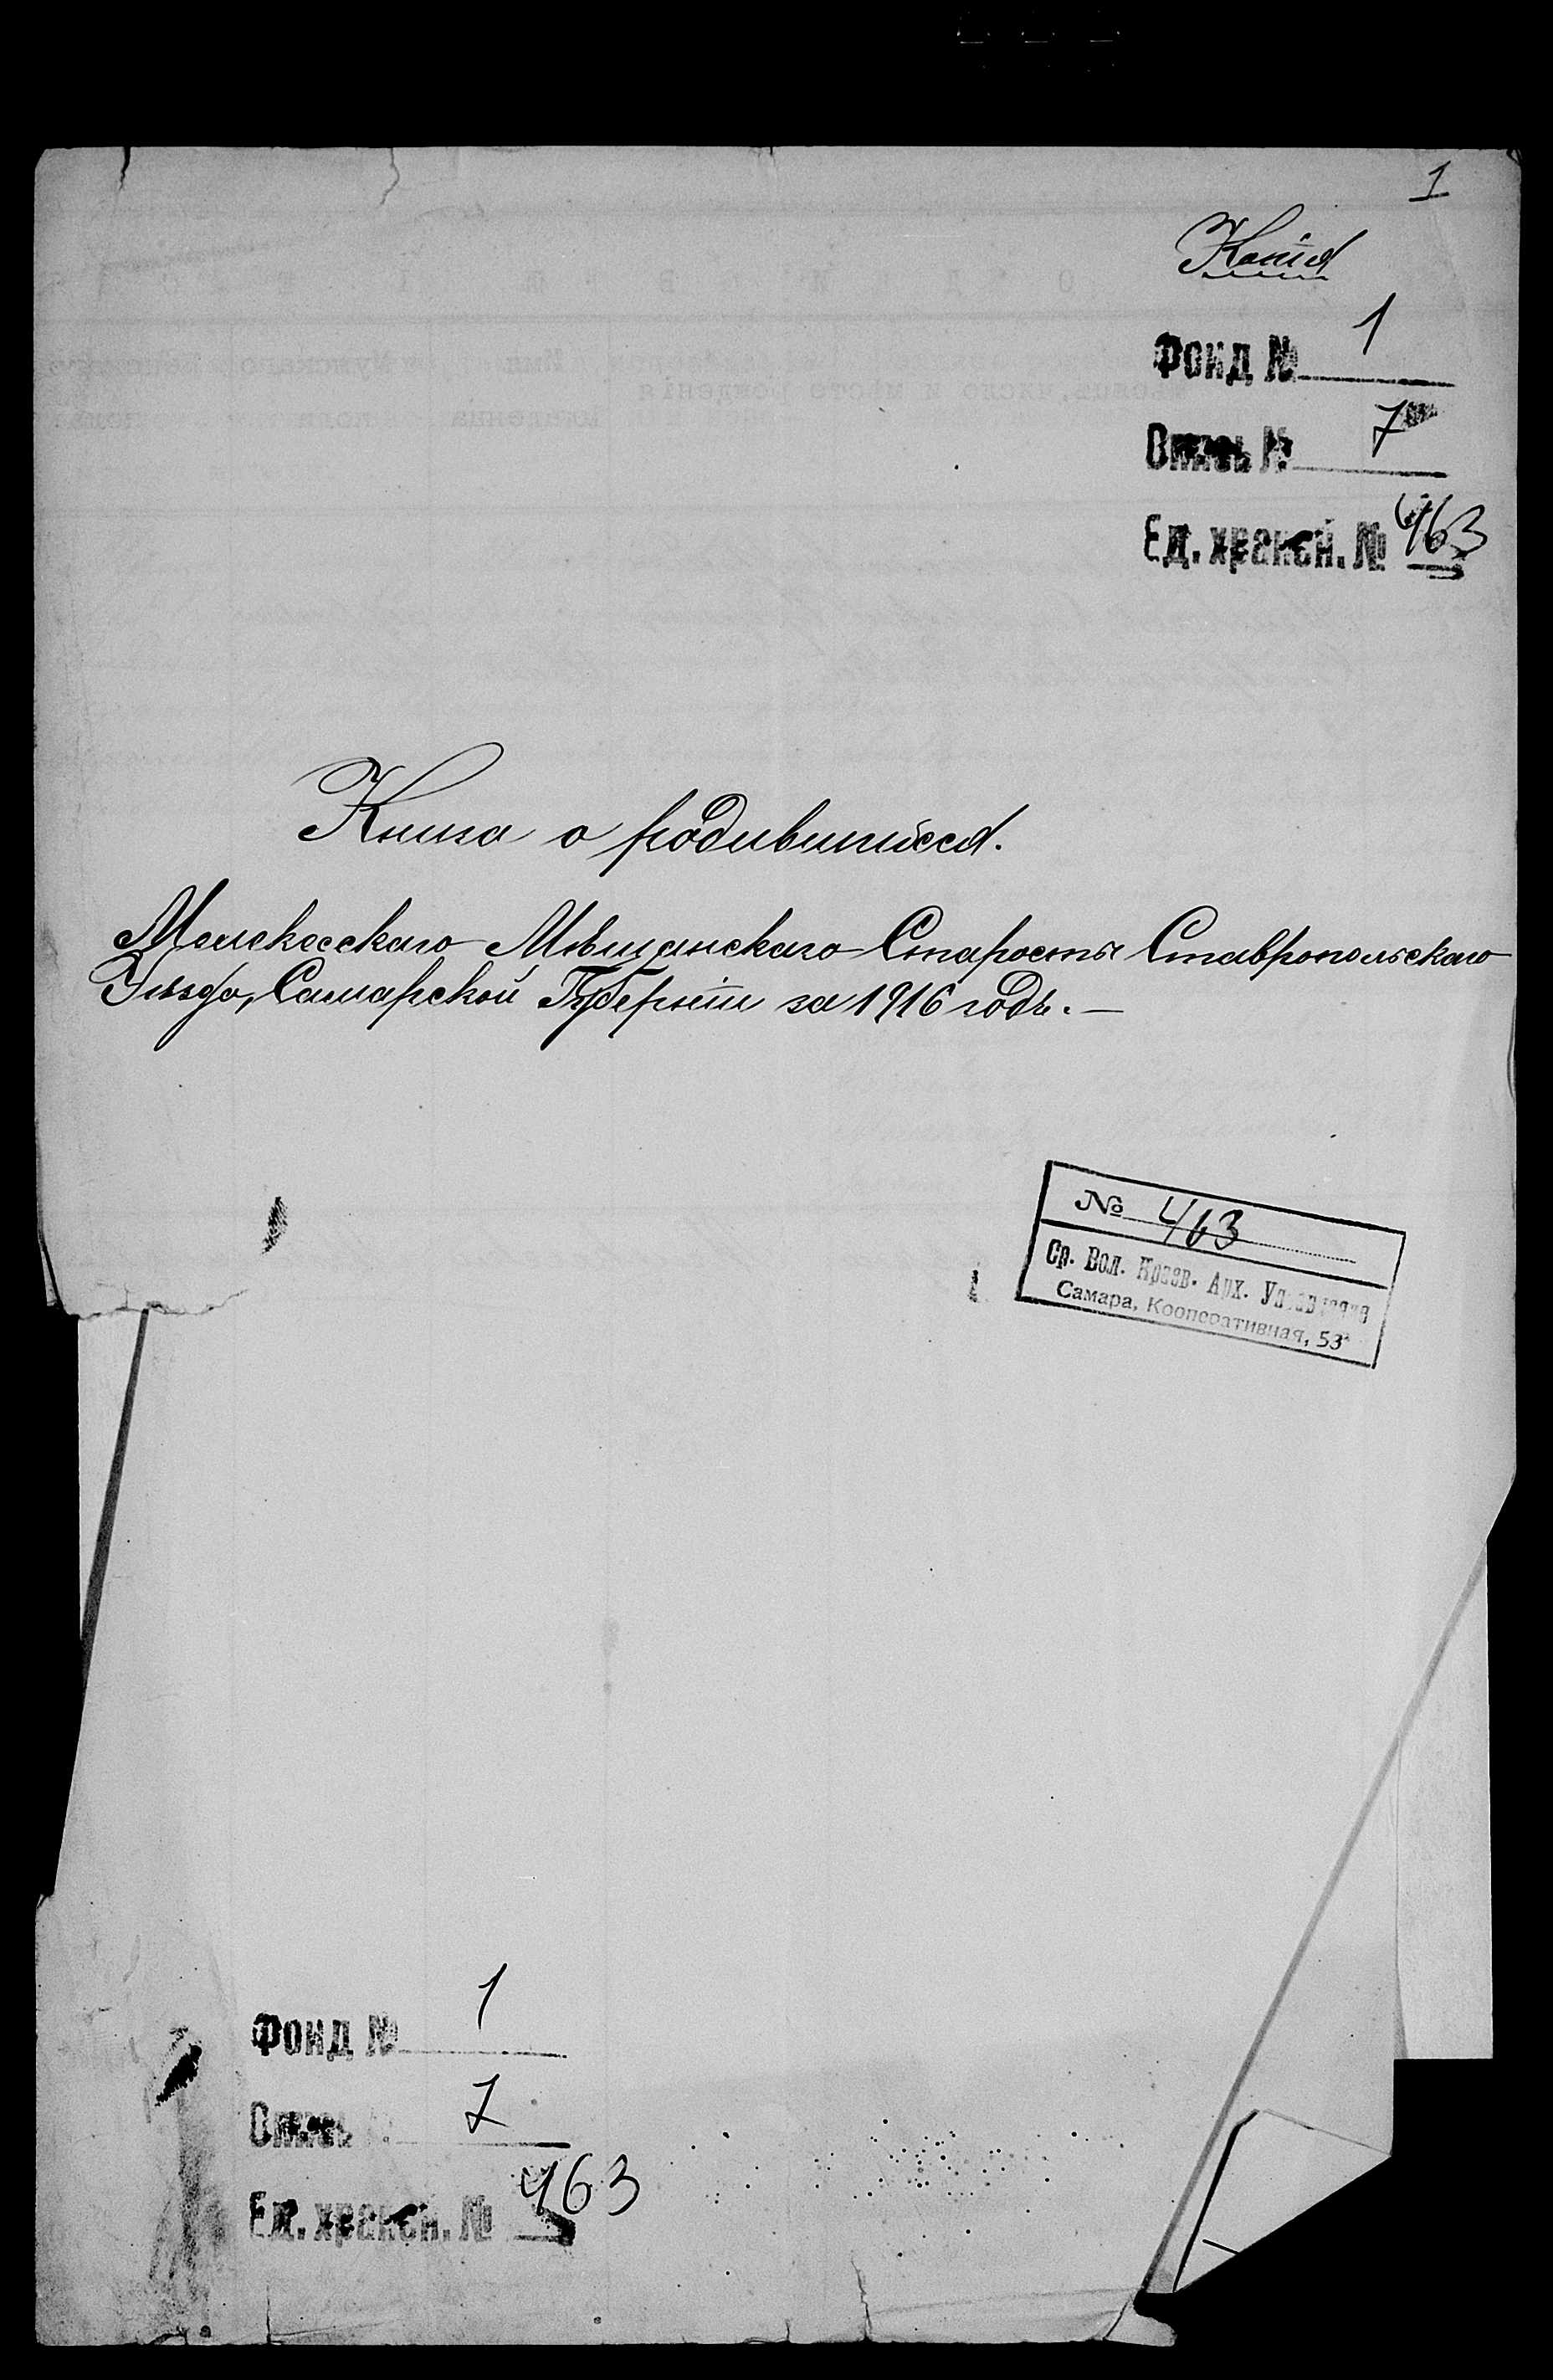 1
Копія
Фонд № 1
Опись № 7
Ед. хранен. № 463
Книга о родившихся.
Мелекесскаго Мѣщанскаго Старосты Ставропольскаго
Уѣзда, Самарской Губерніи за 1916 годъ.—
№ 463
Ср. Вол. Краев. Арх. Управление
Самара, Кооперативная, 53
Фонд № 1
Опись 7
Ед. хранен. № 463